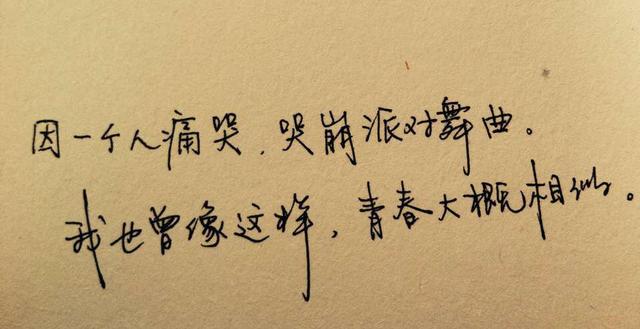 因一个人痛哭,哭崩派对舞曲。
我也曾像这样,青春大概相似。